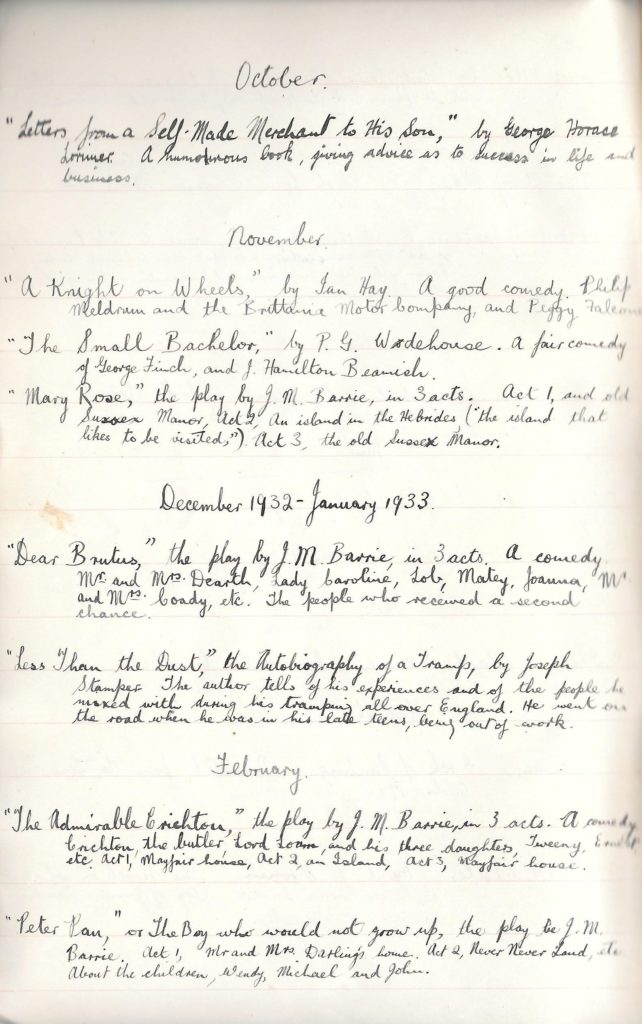 October.
"Letters from a Self-Made Merchant to His Son," by George Horase
Lorimer. A humourous book, giving advice as to success in life and
business.
November.
"A Knight on Wheels," by Ian Hay. A good comedy. Philip
Meldrum and the Brittania Motor Company, and Peggy Falconer
"The Small Bachelor," by P. G. Wodehouse. A fair comedy
of George Finch, and J. Hamilton Beamish.
"Mary Rose," the play by J. M. Barrie, in 3 acts. Act 1, and old
Sussex Manor, Act 2, An island in the Hebrides, ("the island that
likes to be visited,"). Act 3, the old Sussex Manor.
December 1932 - January 1933.
"Dear Brutus," the play by J. M. Barrie, in 3 acts. A comedy.
Mr. and Mrs. Dearth, Lady Caroline, Lob, Matey, Joanna, Mr.
and Mrs. Coady, etc. The people who received a second
chance.
"Less Than the Dust," the Autobiography of a Tramp, by Joseph
Stamper. The author tells of his experiences and of the people he
mixed with during his tramping all over England. He went on
the road when he was in his late teens, being out of work.
February.
"The Admirable Crichton," the play by J. M. Barrie, in 3 acts. A comedy
Crichton, the butler, Lord Loam, and his three daughters, Tweeny, Ernest
etc. Act 1, Mayfair house, Act 2, an Island, Act 3, Mayfair house.
"Peter Pan," or The Boy who would not grow up, the play be J. M.
Barrie. Act 1, Mr and Mrs. Darling's home. Act 2, Never Never Land, etc.
About the children, Wendy, Michael and John.